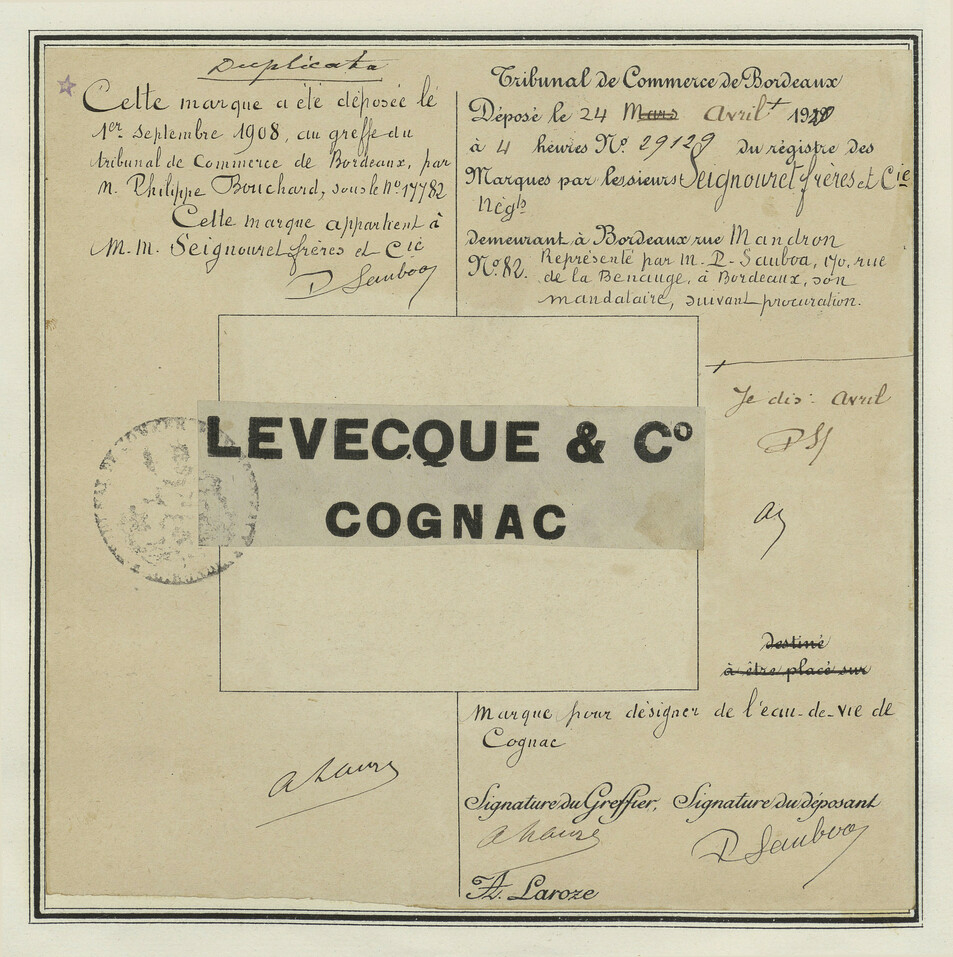 Duplicata
Cette marque a été déposée le
1er Septembre 1908, au greffe du
tribunal de Commerce de Bordeaux, par
M. Philippe Bouchard, sous le No 17782
Cette marque appartient à
M.M. Seignouret frères et Cie
P Sauboa
Tribunal de Commerce de Bordeaux
Déposé le 24 Mars Avril
à 4 heures No. 29129 du régistre des
Marques par les sieurs Seignouret frères et Cie
Négts
demeurant à Bordeaux rue Mandron
No. 82. Représenté par M. P. Sauboa, 170, rue
de la Benauge, à Bordeaux, son
mandataire, suivant procuration.
Je dis: Avril
PS
LEVECQUE & Co
COGNAC
destiné
à être placé sur
Marque pour désigner de l'eau-de-vie de
Cognac
Signature du Greffier, Signature du déposant
P Sauboa
A. Laroze